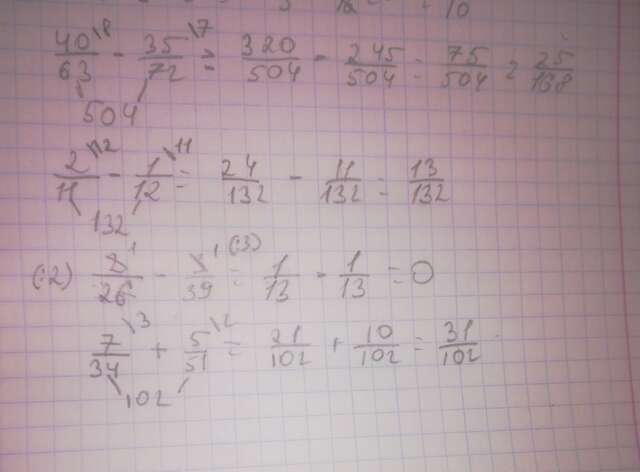 10
40/63 \8 - 35/72 \7 = 320/504 - 245/504 = 75/504 = 25/168
504
2/11 \12 - 1/12 \11 = 24/132 - 11/132 = 13/132
132
(:2) /26 - /39 (:3) = 1/13 - 1/13 = 0
7/34 \3 + 5/51 \2 = 21/102 + 10/102 = 31/102
102